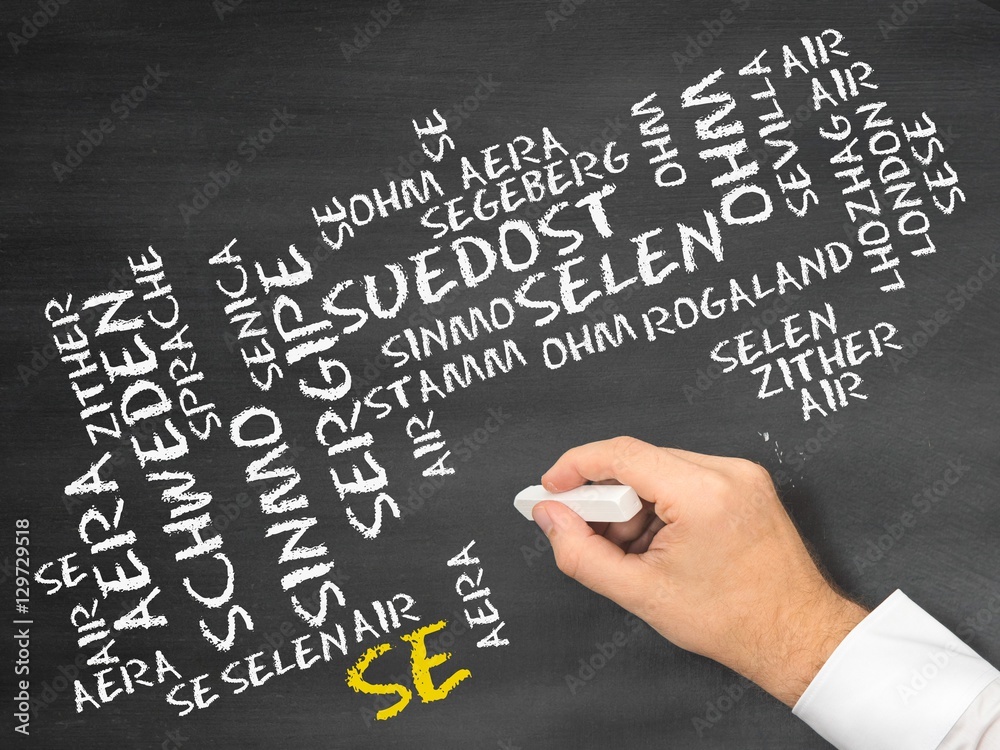 AIR
AIR
SE
OHM
OHM
SEVILLA
LHOZHAG
LONDON
SESE
AERA
SEGEBERG
SE
OHM
SUEDOST
SELEN
SINMO
STAMM
OHM
ROGALAND
SELEN
ZITHER
AIR
ZITHER
SPRACHE
SENICA
SERGIPE
AERA
SCHWEDEN
SINMO
AIR
AERA
SE
AIR
AERA
SE
SELEN
AIR
SE
AERA
Adobe Stock | #129729518